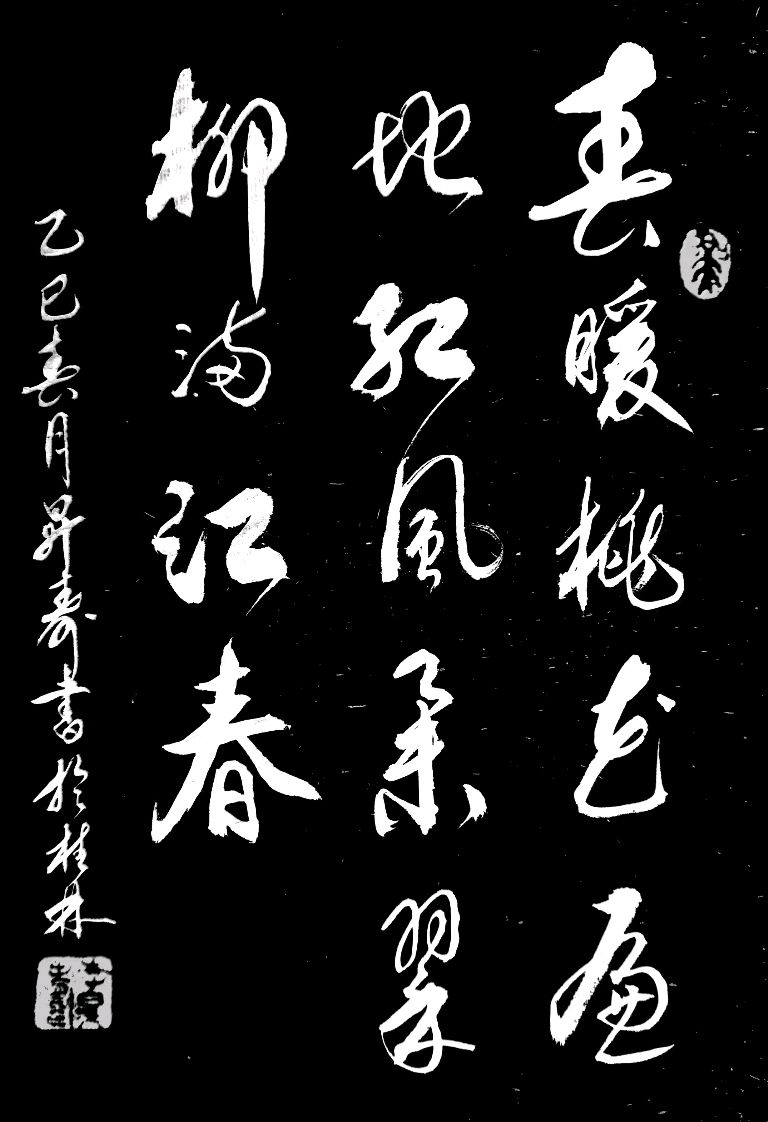 春暖桃花遍
地红風柔翠
柳满江春
乙巳春月昇寿書於桂林